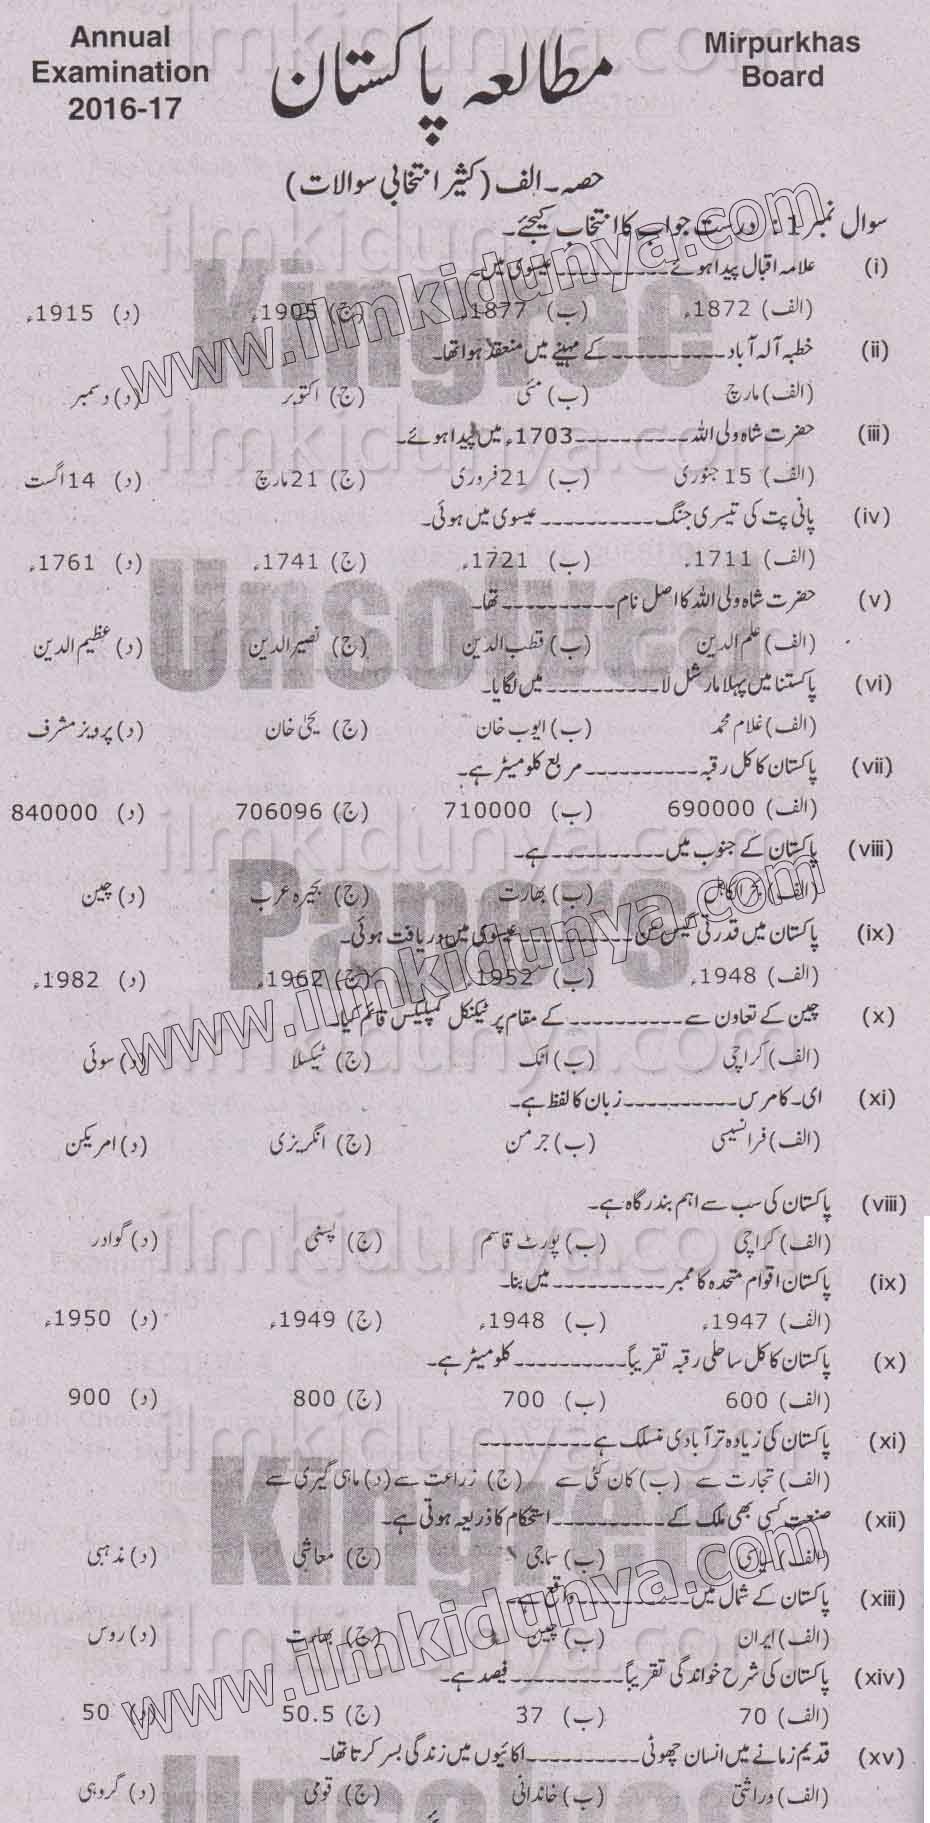 Annual
Examination
2016-17
مطالعہ پاکستان
Mirpurkhas
Board
حصہ۔الف (کثیر انتخابی سوالات)
سوال نمبر 1: درست جواب کا انتخاب کیجئے۔
(i) علامہ اقبال پیدا ہوئے ---------- عیسوی میں۔
(الف) 1872ء (ب) 1877ء (ج) 1905ء (د) 1915ء
(ii) خطبہ آلہ آباد ---------- کے مہینے میں منعقد ہوا تھا۔
(الف) مارچ (ب) مئی (ج) اکتوبر (د) دسمبر
(iii) حضرت شاہ ولی اللہ ---------- 1703ء میں پیدا ہوئے۔
(الف) 15 جنوری (ب) 21 فروری (ج) 21 مارچ (د) 14 اگست
(iv) پانی پت کی تیسری جنگ ---------- عیسوی میں ہوئی۔
(الف) 1711ء (ب) 1721ء (ج) 1741ء (د) 1761ء
(v) حضرت شاہ ولی اللہ کا اصل نام ---------- تھا۔
(الف) علم الدین (ب) قطب الدین (ج) نصیر الدین (د) عظیم الدین
(vi) پاکستنا میں پہلا مارشل لا ---------- میں لگایا۔
(الف) غلام محمد (ب) ایوب خان (ج) یحیٰی خان (د) پرویز مشرف
(vii) پاکستان کا کل رقبہ ---------- مربع کلومیٹر ہے۔
(الف) 690000 (ب) 710000 (ج) 706096 (د) 840000
(viii) پاکستان کے جنوب میں ---------- ہے۔
(الف) بحرالکاہل (ب) بھارت (ج) بحیرہ عرب (د) چین
(ix) پاکستان میں قدرتی گیس سن ---------- عیسوی میں دریافت ہوئی۔
(الف) 1948ء (ب) 1952ء (ج) 1962ء (د) 1982ء
(x) چین کے تعاون سے ---------- کے مقام پر ٹیکنکل کمپلیکس قائم کیا۔
(الف) کراچی (ب) اٹک (ج) ٹیکسلا (د) سوئی
(xi) ای۔کامرس ---------- زبان کا لفظ ہے۔
(الف) فرانسیسی (ب) جرمن (ج) انگریزی (د) امریکن
(viii) پاکستان کی سب سے اہم بندرگاہ ہے۔
(الف) کراچی (ب) پورٹ قاسم (ج) پسنی (د) گوادر
(ix) پاکستان اقوام متحدہ کا ممبر ---------- میں بنا۔
(الف) 1947ء (ب) 1948ء (ج) 1949ء (د) 1950ء
(x) پاکستان کا کل ساحلی رقبہ تقریباً ---------- کلومیٹر ہے۔
(الف) 600 (ب) 700 (ج) 800 (د) 900
(xi) پاکستان کی زیادہ تر آبادی منسلک ہے ----------
(الف) تجارت سے (ب) کان کنی سے (ج) زراعت سے (د) ماہی گیری سے
(xii) صنعت کسی بھی ملک کے ---------- استحکام کا ذریعہ ہوتی ہے۔
(الف) سیاسی (ب) سماجی (ج) معاشی (د) مذہبی
(xiii) پاکستان کے شمال میں ---------- واقع ہے۔
(الف) ایران (ب) چین (ج) بھارت (د) روس
(xiv) پاکستان کی شرح خواندگی تقریباً ---------- فیصد ہے۔
(الف) 70 (ب) 37 (ج) 50.5 (د) 50
(xv) قدیم زمانے میں انسان چھوٹی ---------- اکائیوں میں زندگی بسر کرتا تھا۔
(الف) وراثتی (ب) خاندانی (ج) قومی (د) گروہی
www.ilmkidunya.com
www.ilmkidunya.com
www.ilmkidunya.com
Kingree
Unsolved
Papers
Kingree
Unsolved